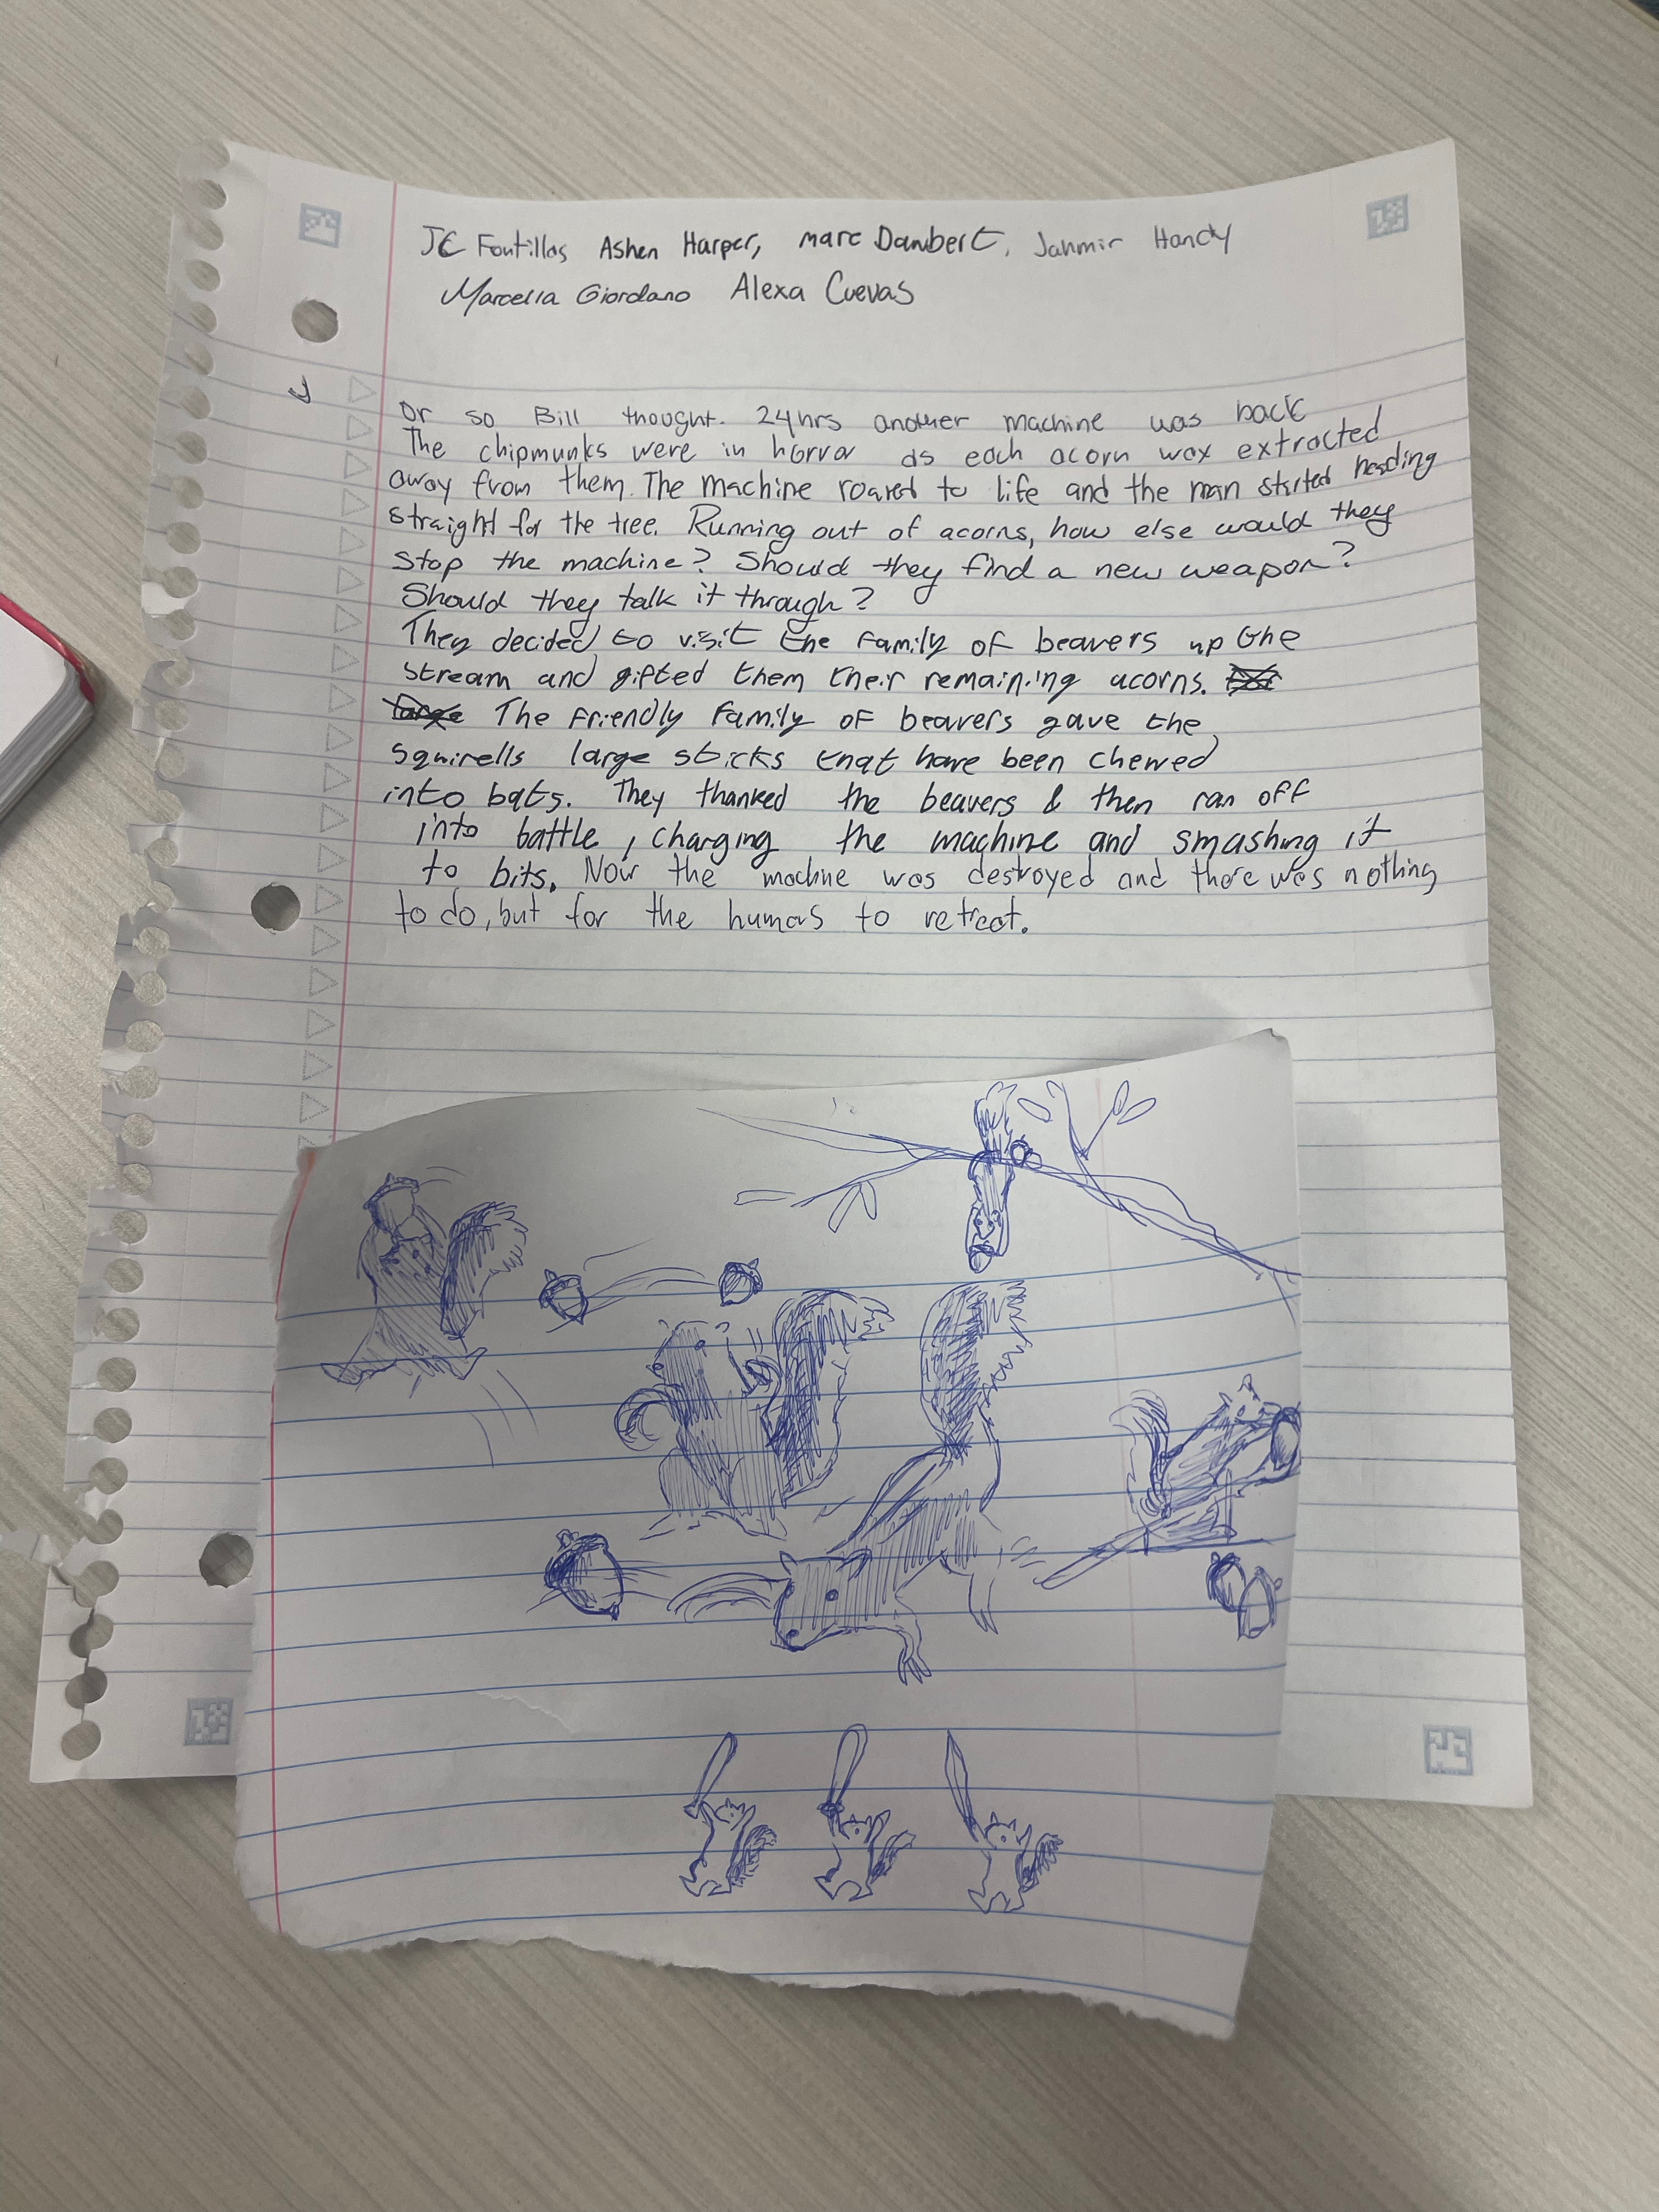 JC Fontillas Ashen Harper, Marc Dambert, Jahmir Handy
Marcella Giordano Alexa Cuevas
Or so Bill thought. 24hrs another machine was back
The chipmunks were in horror as each acorn wax extracted
away from them. The machine roared to life and the man started heading
straight for the tree. Running out of acorns, how else would they
stop the machine? Should they find a new weapon?
Should they talk it through?
They decided to visit the family of beavers up the
stream and gifted them their remaining acorns.
The friendly family of beavers gave the
squirells large sticks that have been chewed
into bats. They thanked the beavers & then ran off
into battle, charging the machine and smashing it
to bits. Now the machine was destroyed and there was nothing
to do, but for the humans to retreat.